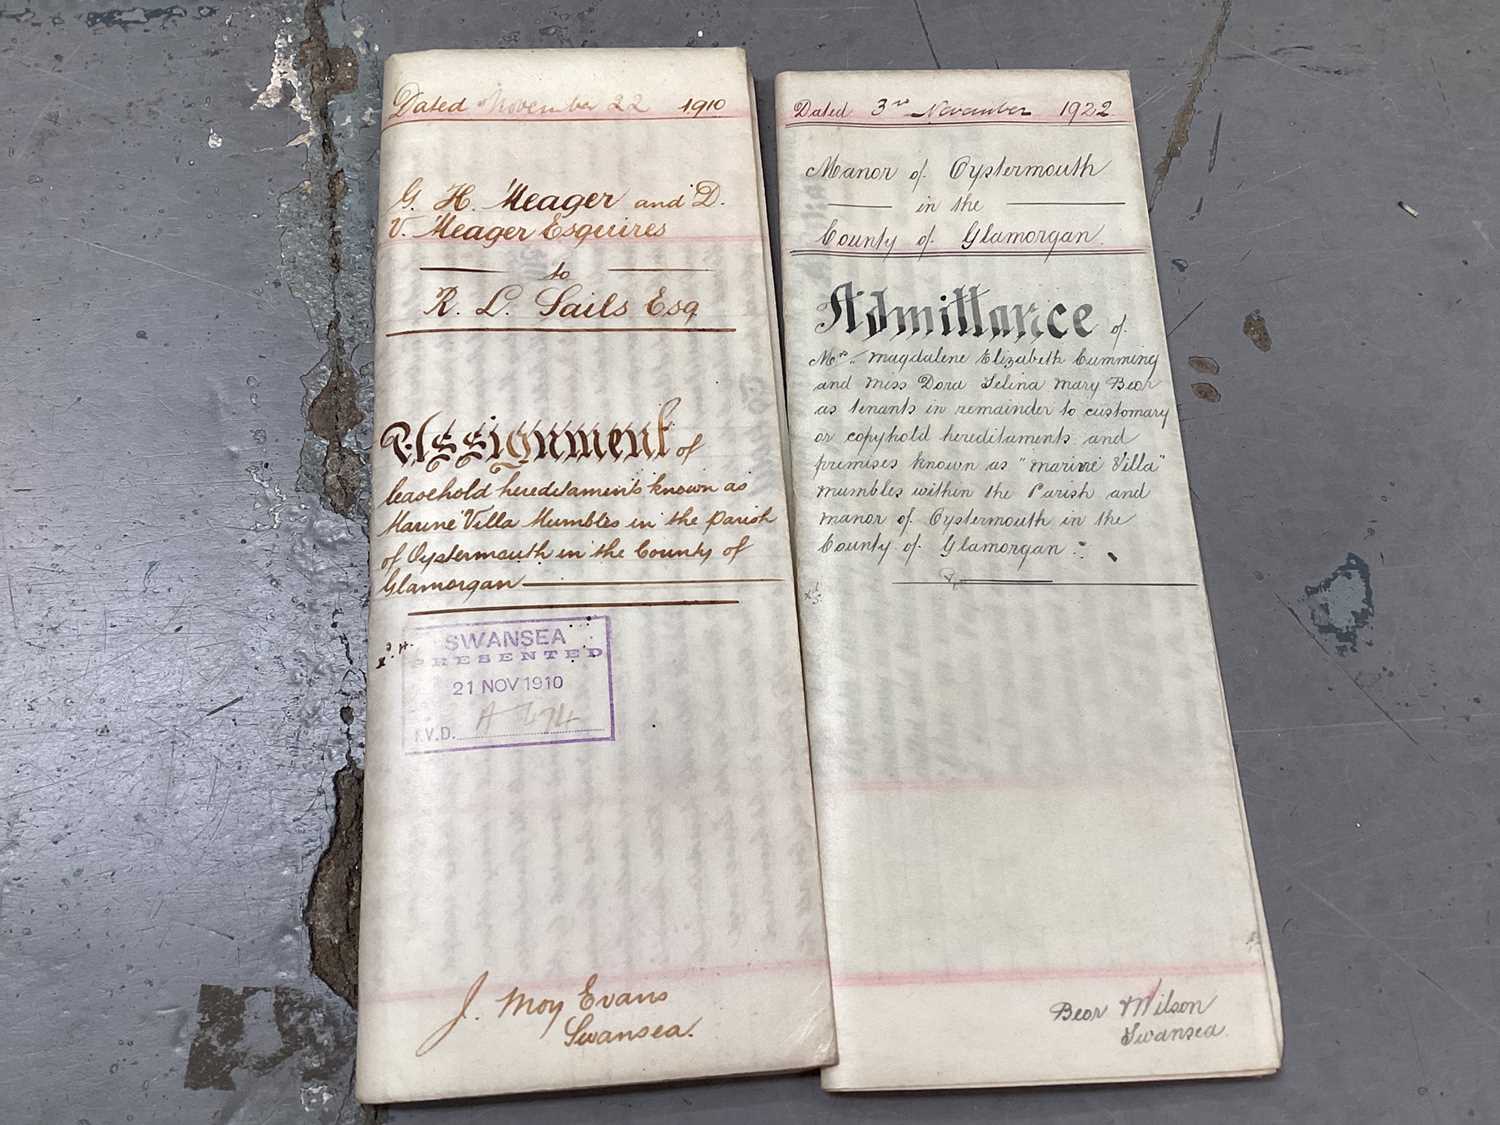 Dated November 22 1910
G. H. Meager and D.
V. Meager Esquires
to
R. L. Sails Esq
Assignment of
leasehold hereditaments known as
Marine Villa Mumbles in the parish
of Oystermouth in the County of
Glamorgan
SWANSEA
PRESENTED
21 NOV 1910
A 
J. Moy Evans
Swansea.
Dated 3rd November 1922
Manor of Oystermouth
in the
County of Glamorgan.
Admittance of
Mrs. Magdalene Elizabeth Cumming
and Miss Dora Selina Mary Beor
as tenants in remainder to customary
or copyhold hereditaments and
premises known as "Marine Villa"
Mumbles within the Parish and
Manor of Oystermouth in the
County of Glamorgan.
Beor Wilson
Swansea.